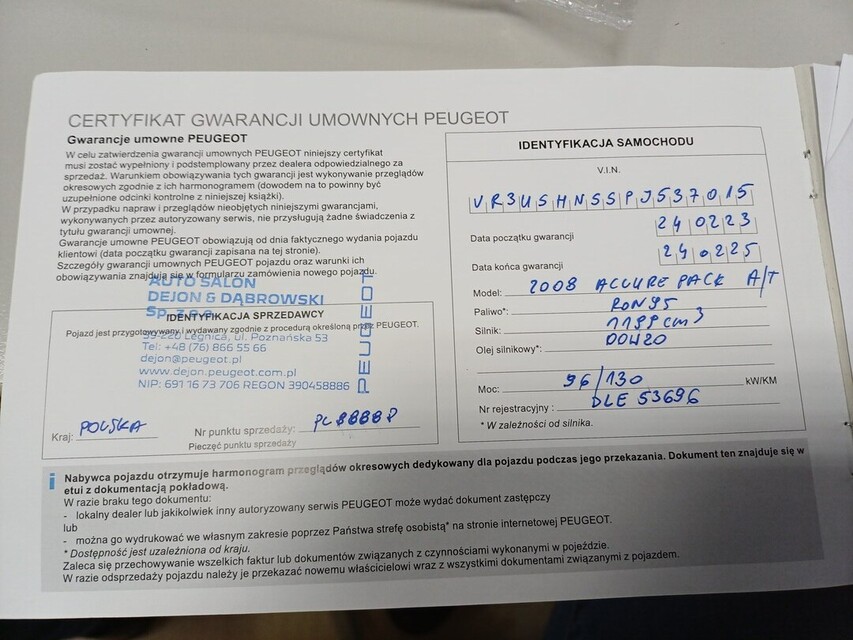 CERTYFIKAT GWARANCJI UMOWNYCH PEUGEOT
Gwarancje umowne PEUGEOT
W celu zatwierdzenia gwarancji umownych PEUGEOT niniejszy certyfikat
musi zostać wypełniony i podstemplowany przez dealera odpowiedzialnego za
sprzedaż. Warunkiem obowiązywania tych gwarancji jest wykonywanie przeglądów
okresowych zgodnie z ich harmonogramem (dowodem na to powinny być
uzupełnione odcinki kontrolne z niniejszej książki).
W przypadku napraw i przeglądów nieobjętych niniejszymi gwarancjami,
wykonywanych przez autoryzowany serwis, nie przysługują żadne świadczenia z
tytułu gwarancji umownej.
Gwarancje umowne PEUGEOT obowiązują od dnia faktycznego wydania pojazdu
klientowi (data początku gwarancji zapisana na tej stronie).
Szczegóły gwarancji umownych PEUGEOT pojazdu oraz warunki ich
obowiązywania znajdują się w formularzu zamówienia nowego pojazdu.
AUTO SALON
DEJON & DĄBROWSKI
Sp. z o.o.
IDENTYFIKACJA SPRZEDAWCY
Pojazd jest przygotowywany i wydawany zgodnie z procedurą określoną przez PEUGEOT.
59-220 Legnica, ul. Poznańska 53
Tel: +48 (76) 866 55 66
dejon@peugeot.pl
www.dejon.peugeot.com.pl
NIP: 691 16 73 706 REGON 390458886
PEUGEOT
Kraj: POLSKA Nr punktu sprzedaży:
Pieczęć punktu sprzedaży
IDENTYFIKACJA SAMOCHODU
V.I.N.
VR3USHNSSPJ537015
Data początku gwarancji 240223
Data końca gwarancji 240225
Model: 2008 ACCURE PACK A/T
Paliwo*: RON95
Silnik: 1199 cm3
Olej silnikowy*: 00W20
Moc: 96/130 kW/KM
Nr rejestracyjny: DLE 53696
* W zależności od silnika.
i
Nabywca pojazdu otrzymuje harmonogram przeglądów okresowych dedykowany dla pojazdu podczas jego przekazania. Dokument ten znajduje się w
etui z dokumentacją pokładową.
W razie braku tego dokumentu:
- lokalny dealer lub jakikolwiek inny autoryzowany serwis PEUGEOT może wydać dokument zastępczy
lub
- można go wydrukować we własnym zakresie poprzez Państwa strefę osobistą* na stronie internetowej PEUGEOT.
* Dostępność jest uzależniona od kraju.
Zaleca się przechowywanie wszelkich faktur lub dokumentów związanych z czynnościami wykonanymi w pojeździe.
W razie odsprzedaży pojazdu należy je przekazać nowemu właścicielowi wraz z wszystkimi dokumentami związanymi z pojazdem.